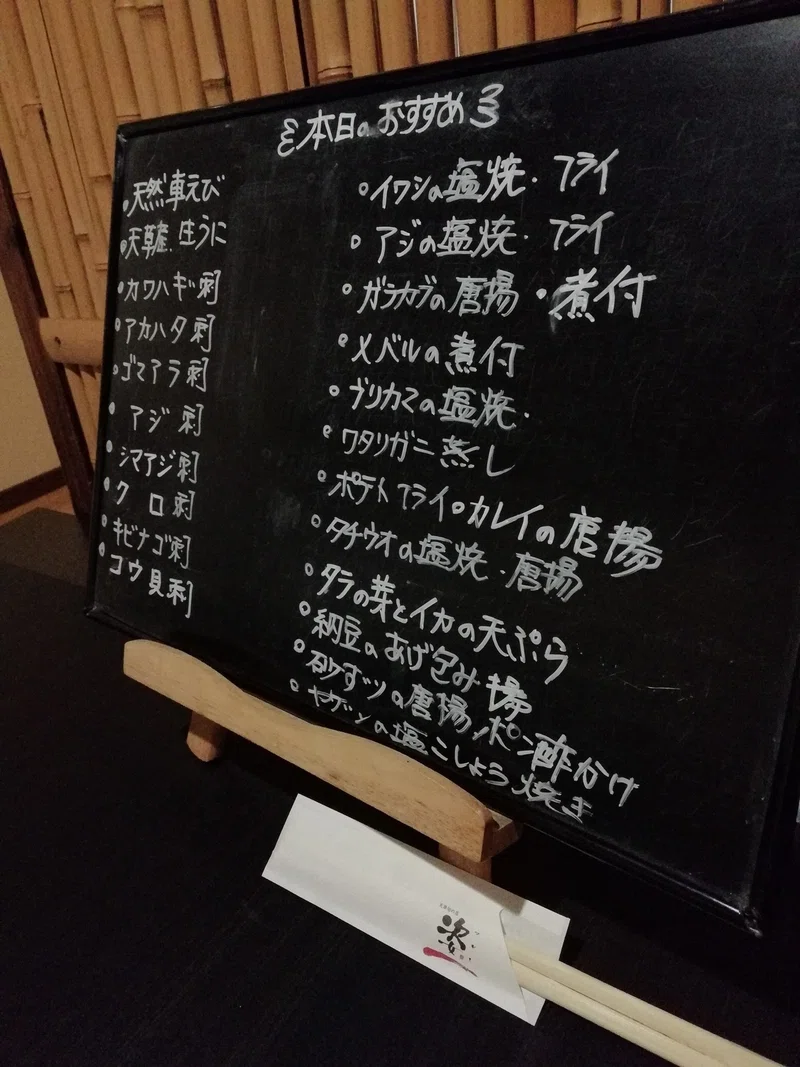 本日のおすすめ
・天然車えび
・天草産 生うに
・カワハギ刺
・アカハタ刺
・ゴマアラ刺
・アジ刺
・シマアジ刺
・クロ刺
・キビナゴ刺
・コウ貝刺
・イワシの塩焼・フライ
・アジの塩焼・フライ
・ガラカブの唐揚・煮付
・メバルの煮付
・ブリカマの塩焼・
・ワタリガニ蒸し
・ポテトフライ・カレイの唐揚
・タチウオの塩焼・唐揚
・タラの芽とイカの天ぷら
・納豆のあげ包み揚
・砂ずりの唐揚ポン酢かけ
・ヤゲンの塩こしょう焼き
姿